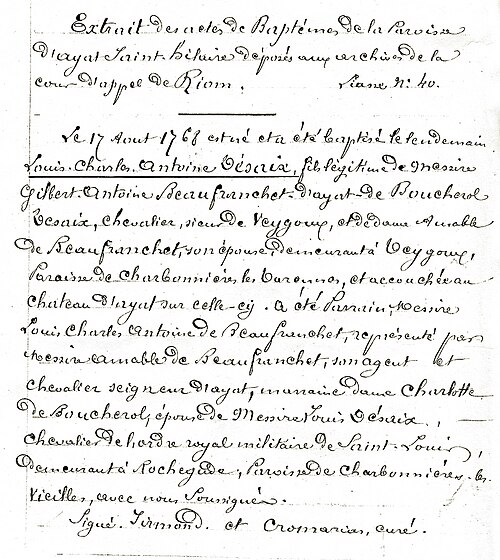 Extrait des actes de Baptêmes de la Paroisse
d'ayat Saint-hilaire déposés aux archives de la
cour d'appel de Riom. Liasse n°. 40.
Le 17 Aout 1768 est né et a été baptisé le lendemain
Louis-Charles-Antoine Désaix, fils légitime de Messire
Gilbert-Antoine Beaufranchet-d'ayat-de Boucherol
Désaix, chevalier, sieur de Veygoux, et de dame Amable
de Beaufranchet, son épouse, demeurant à Veygoux,
Paroisse de Charbonnières les Varennes, et accouchée au
chateau d'ayat sur celle-cy. a été Parrain, Messire
Louis Charles Antoine de Beaufranchet, représenté par
Messire Amable de Beaufranchet, son agent et
chevalier seigneur d'ayat, marraine dame Charlotte
de Boucherol, épouse de Messire Louis Désaix,
chevalier de l'ordre royal militaire de Saint-Louis,
demeurant à Rochegude, Paroisse de Charbonnières-les-
Vieilles, avec nous Soussignés.
Signé. Sirmond. et Cromarias, curé.